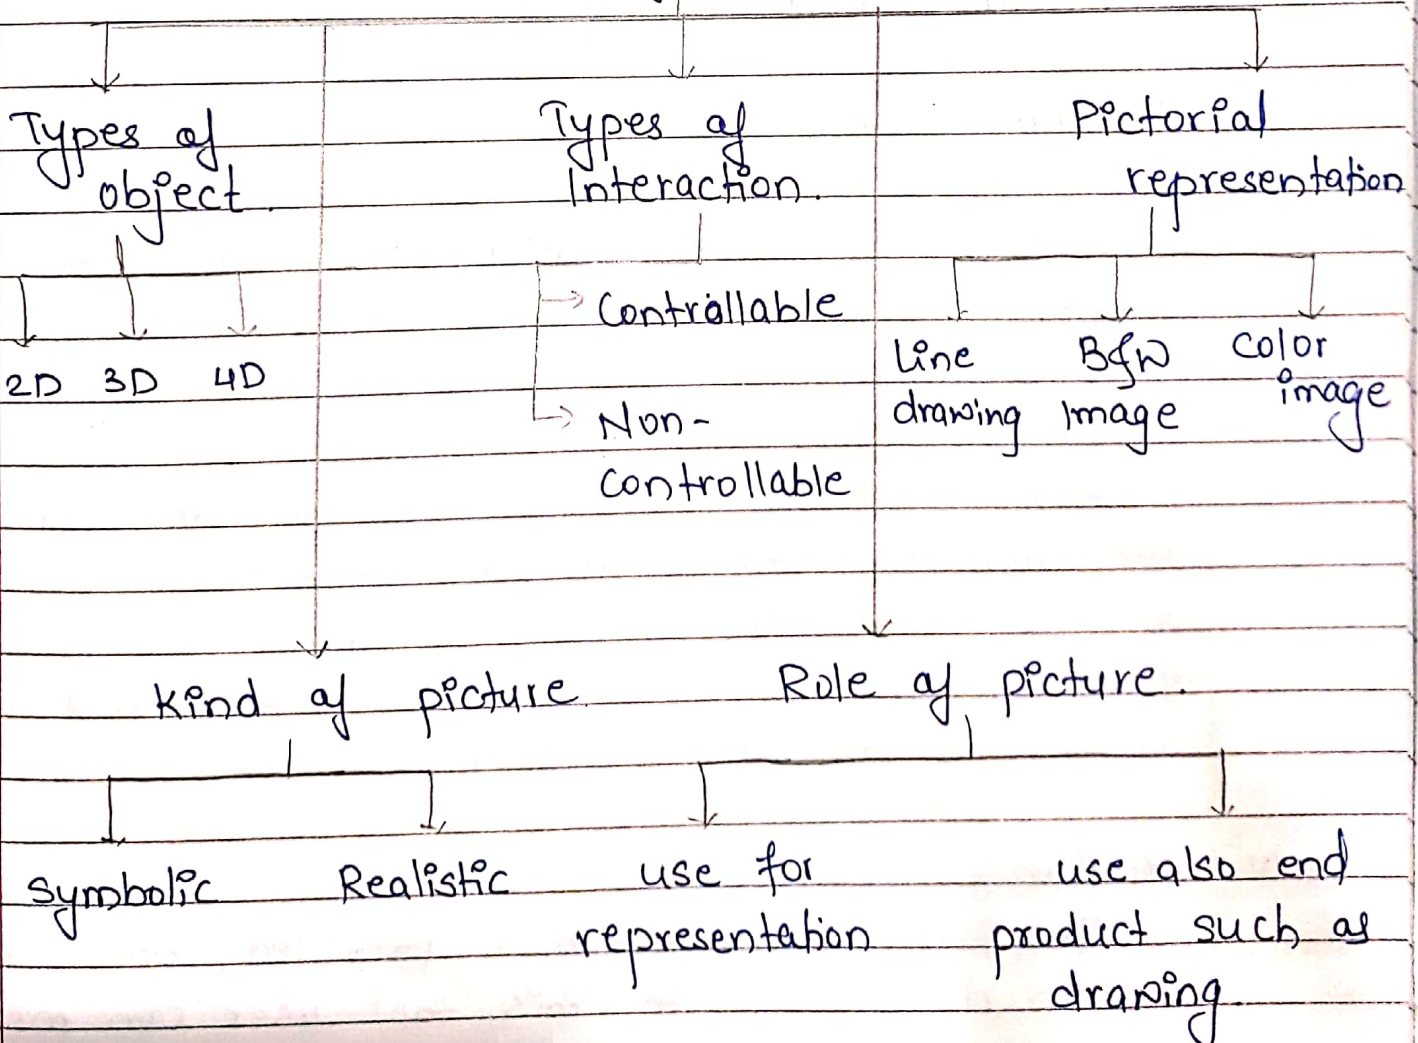 Types of
object.
2D 3D 4D
Types of
Interaction.
Controllable
Non-
controllable
Pictorial
representation
Line
drawing
B&W
Image
Color
image
Kind of picture.
Symbolic
Realistic
Role of picture.
use for
representation
use also end
product such as
drawing